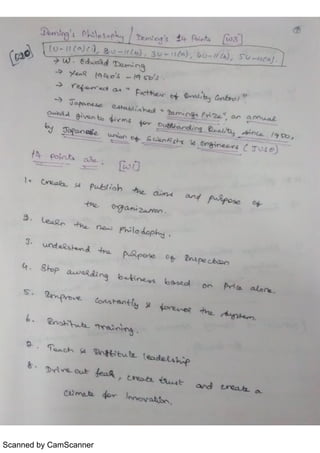 Deming's Philosophy / Deming's 14 Points [WS]
1U-11(a)(i), 2U-11(b), 3U-11(a), 4U-11(a), 5U-11(a).
→ W. Edward Deming
→ Year 1940's - 1950's.
→ referred as "Father of Quality Control"
→ Japanese established "Deming Prize", an annual
award given to firms for outstanding Quality, since 1950,
by Japanese union of Scientists & Engineers (JUSE)
14 points are:
1. Create & publish the aims and purpose of
the organization.
2. Learn the new Philosophy.
3. understand the purpose of Inspection
4. Stop awarding business based on Price alone.
5. Improve constantly & forever the system.
6. Institute Training.
7. Teach & Institute leadership
8. Drive out fear, create trust and create a
climate for innovation.
Scanned by CamScanner